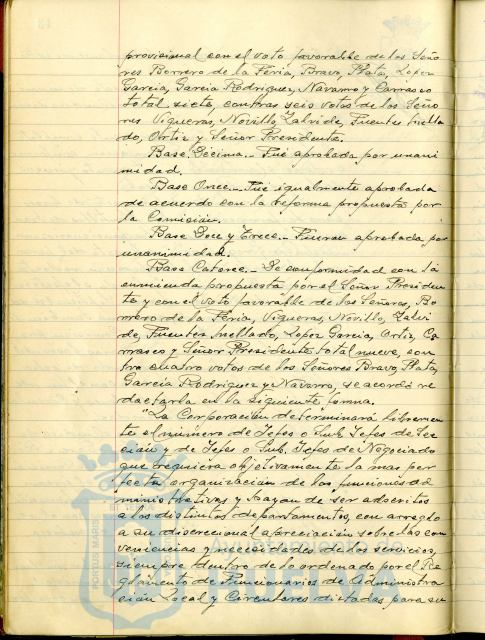 provisional con el voto favorable de los Seño
res Borrero de la Feria, Bravo, Plata, Lopez
Garcia, Garcia Rodriguez, Navarro y Carrasco
total siete, contra seis votos de los Seño
res Vigueras, Novillo, Zalvide, Fuentes Mella
do, Ortiz y Señor Presidente.
Base Décima.- Fué aprobada por unani
midad.
Base Once.- Fué igualmente aprobada
de acuerdo con la reforma propuesta por
la Comisión.
Base Doce y Trece.- Fueron aprobada por
unanimidad.
Base Catorce.- De conformidad con la
enmienda propuesta por el Señor Presiden
te y con el voto favorable de los Señores, Bo
rrero de la Feria, Vigueras, Novillo, Zalvi
de, Fuentes Mellado, Lopez Garcia, Ortiz, Ca
rrasco y Señor Presidente total nueve, con
tra cuatro votos de los Señores Bravo, Plata,
Garcia Rodriguez y Navarro, se acordó re
dactarla en la siguiente forma.
"La Corporación determinará libremen
te el número de Jefes o Sub. Jefes de Sec
ción y de Jefes o Sub. Jefes de Negociado
que requiera objetivamente la mas per
fecta organización de las funciones ad
ministrativas y hayan de ser adscritos
a los distintos departamentos, con arreglo
a su discrecional apreciación sobre las con
veniencias y necesidades de los servicios,
siempre dentro de lo ordenado por el Re
glamento de Funcionarios de Administra
ción Local y Circulares dictadas para su
Ayuntamiento de
PORTUS MARIS